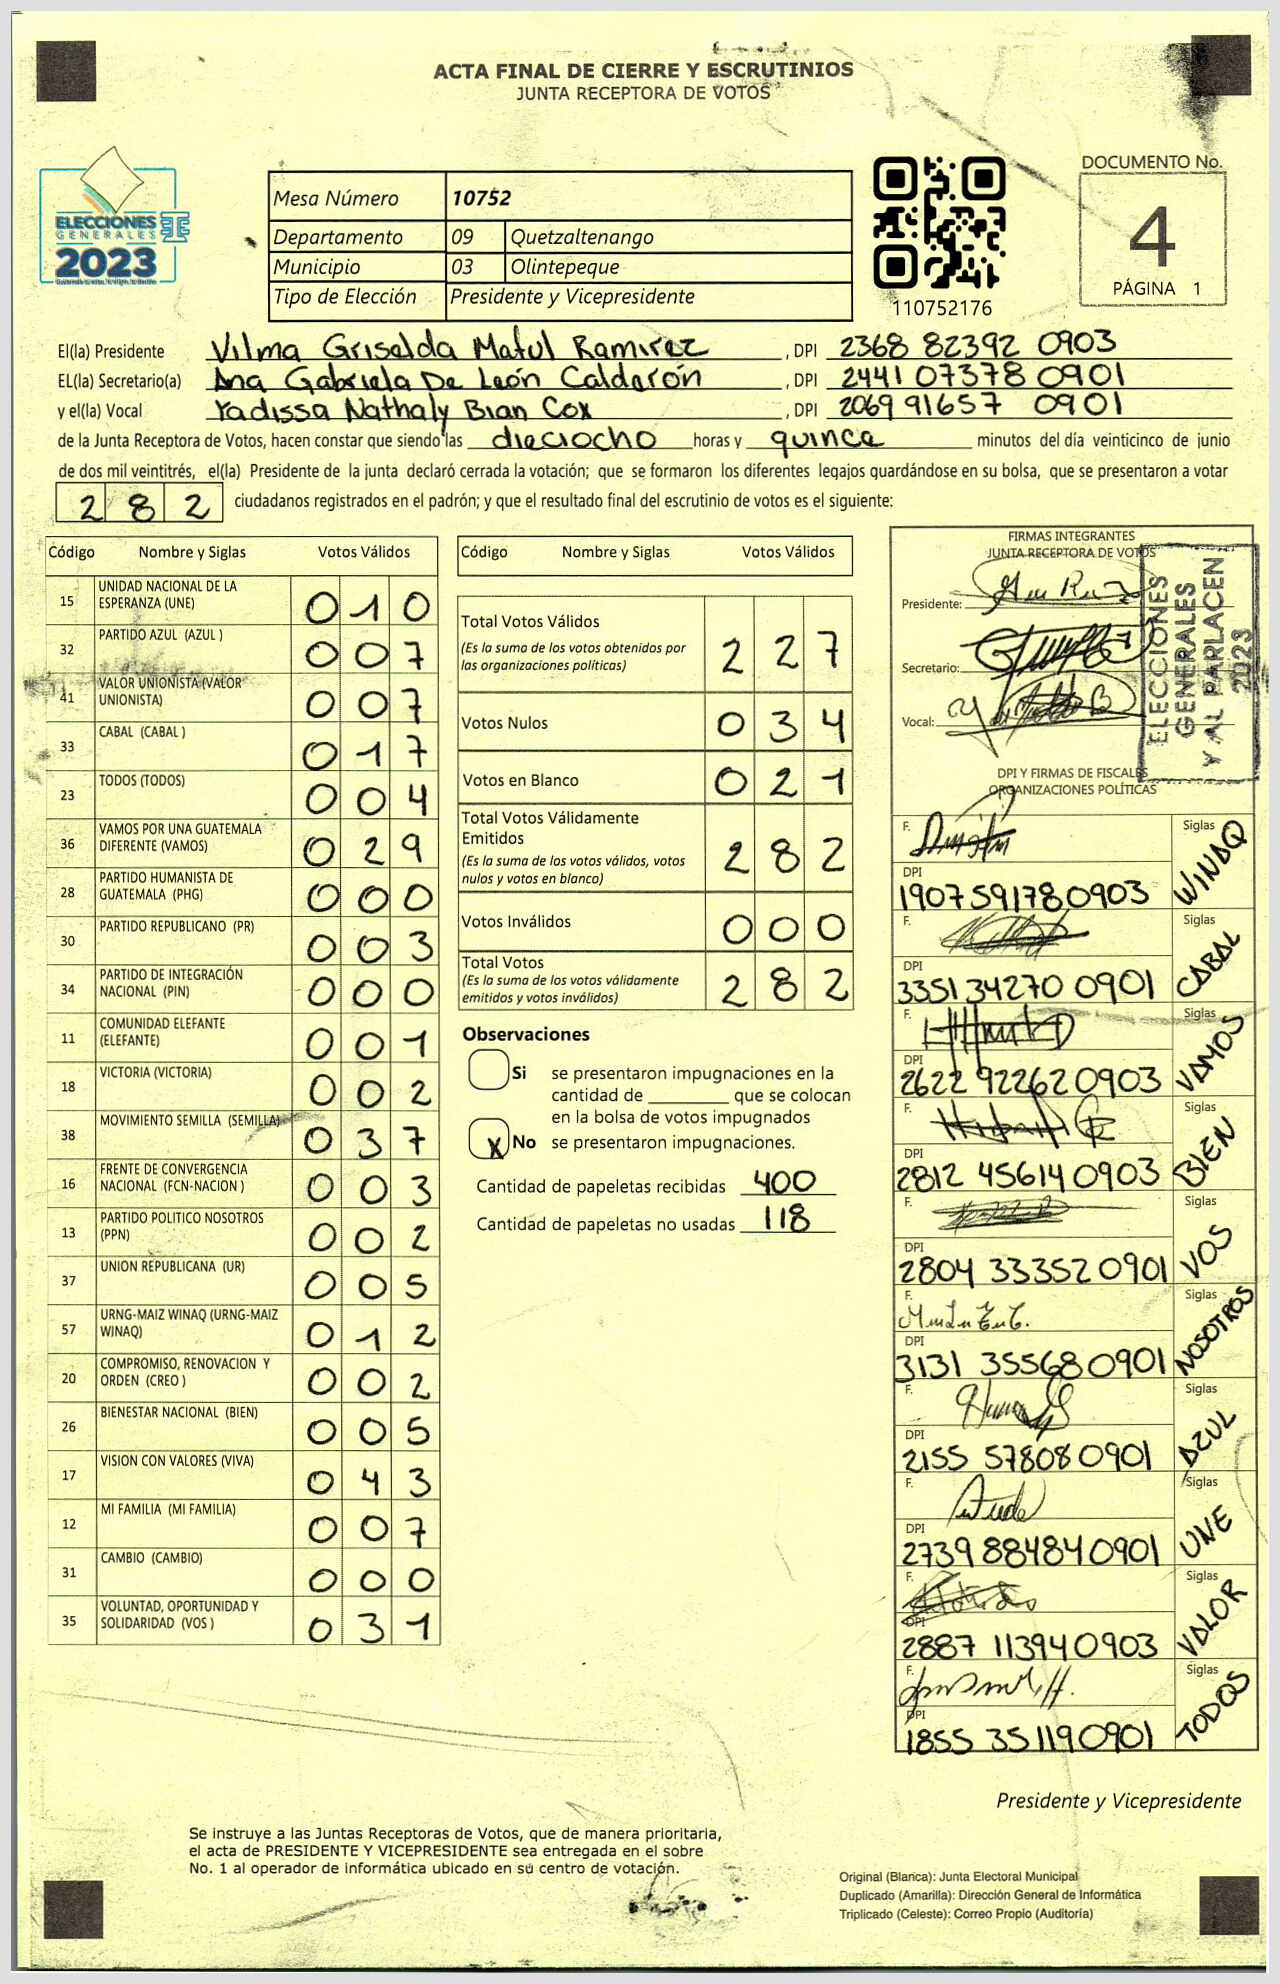 ACTA FINAL DE CIERRE Y ESCRUTINIOS
JUNTA RECEPTORA DE VOTOS
ELECCIONES
GENERALES
2023
Mesa Número 10752
Departamento 09 Quetzaltenango
Municipio 03 Olintepeque
Tipo de Elección Presidente y Vicepresidente
110752176
DOCUMENTO No.
4
PÁGINA 1
El(la) Presidente Vilma Griselda Matul Ramirez , DPI 2368 82392 0903
EL(la) Secretario(a) Ana Gabriela De León Calderón , DPI 2441 07378 0901
y el(la) Vocal Yadissa Nathaly Bian Cox , DPI 2069 91657 0901
de la Junta Receptora de Votos, hacen constar que siendo las dieciocho horas y quince minutos del día veinticinco de junio
de dos mil veintitrés, el(la) Presidente de la junta declaró cerrada la votación; que se formaron los diferentes legajos guardándose en su bolsa, que se presentaron a votar
282 ciudadanos registrados en el padrón; y que el resultado final del escrutinio de votos es el siguiente:
Código Nombre y Siglas Votos Válidos
15 UNIDAD NACIONAL DE LA ESPERANZA (UNE) 010
32 PARTIDO AZUL (AZUL ) 007
41 VALOR UNIONISTA (VALOR UNIONISTA) 007
33 CABAL (CABAL ) 017
23 TODOS (TODOS) 004
36 VAMOS POR UNA GUATEMALA DIFERENTE (VAMOS) 029
28 PARTIDO HUMANISTA DE GUATEMALA (PHG) 000
30 PARTIDO REPUBLICANO (PR) 003
34 PARTIDO DE INTEGRACIÓN NACIONAL (PIN) 000
11 COMUNIDAD ELEFANTE (ELEFANTE) 001
18 VICTORIA (VICTORIA) 002
38 MOVIMIENTO SEMILLA (SEMILLA) 037
16 FRENTE DE CONVERGENCIA NACIONAL (FCN-NACION ) 003
13 PARTIDO POLITICO NOSOTROS (PPN) 002
37 UNION REPUBLICANA (UR) 005
57 URNG-MAIZ WINAQ (URNG-MAIZ WINAQ) 012
20 COMPROMISO, RENOVACION Y ORDEN (CREO ) 002
26 BIENESTAR NACIONAL (BIEN) 005
17 VISION CON VALORES (VIVA) 043
12 MI FAMILIA (MI FAMILIA) 007
31 CAMBIO (CAMBIO) 000
35 VOLUNTAD, OPORTUNIDAD Y SOLIDARIDAD (VOS ) 031
Código Nombre y Siglas Votos Válidos
Total Votos Válidos
(Es la suma de los votos obtenidos por las organizaciones políticas) 227
Votos Nulos 034
Votos en Blanco 021
Total Votos Válidamente Emitidos
(Es la suma de los votos válidos, votos nulos y votos en blanco) 282
Votos Inválidos 000
Total Votos
(Es la suma de los votos válidamente emitidos y votos inválidos) 282
Observaciones
Si se presentaron impugnaciones en la
cantidad de ________ que se colocan
en la bolsa de votos impugnados
X No se presentaron impugnaciones.
Cantidad de papeletas recibidas 400
Cantidad de papeletas no usadas 118
FIRMAS INTEGRANTES
JUNTA RECEPTORA DE VOTOS
Presidente:
Secretario:
Vocal:
ELECCIONES
GENERALES
Y AL PARLACEN
2023
DPI Y FIRMAS DE FISCALES
ORGANIZACIONES POLÍTICAS
F. Siglas WINAQ
DPI
1907 59178 0903
F. Siglas CABAL
DPI
3351 34270 0901
F. Siglas VAMOS
DPI
2622 92262 0903
F. Siglas BIEN
DPI
2812 45614 0903
F. Siglas VOS
DPI
2804 33352 0901
F. Siglas NOSOTROS
DPI
3131 35568 0901
F. Siglas AZUL
DPI
2155 57808 0901
F. Siglas UNE
DPI
2739 88484 0901
F. Siglas VALOR
DPI
2887 11394 0903
F. Siglas TODOS
DPI
1855 35119 0901
Presidente y Vicepresidente
Se instruye a las Juntas Receptoras de Votos, que de manera prioritaria,
el acta de PRESIDENTE Y VICEPRESIDENTE sea entregada en el sobre
No. 1 al operador de informática ubicado en su centro de votación.
Original (Blanca): Junta Electoral Municipal
Duplicado (Amarilla): Dirección General de Informática
Triplicado (Celeste): Correo Propio (Auditoría)